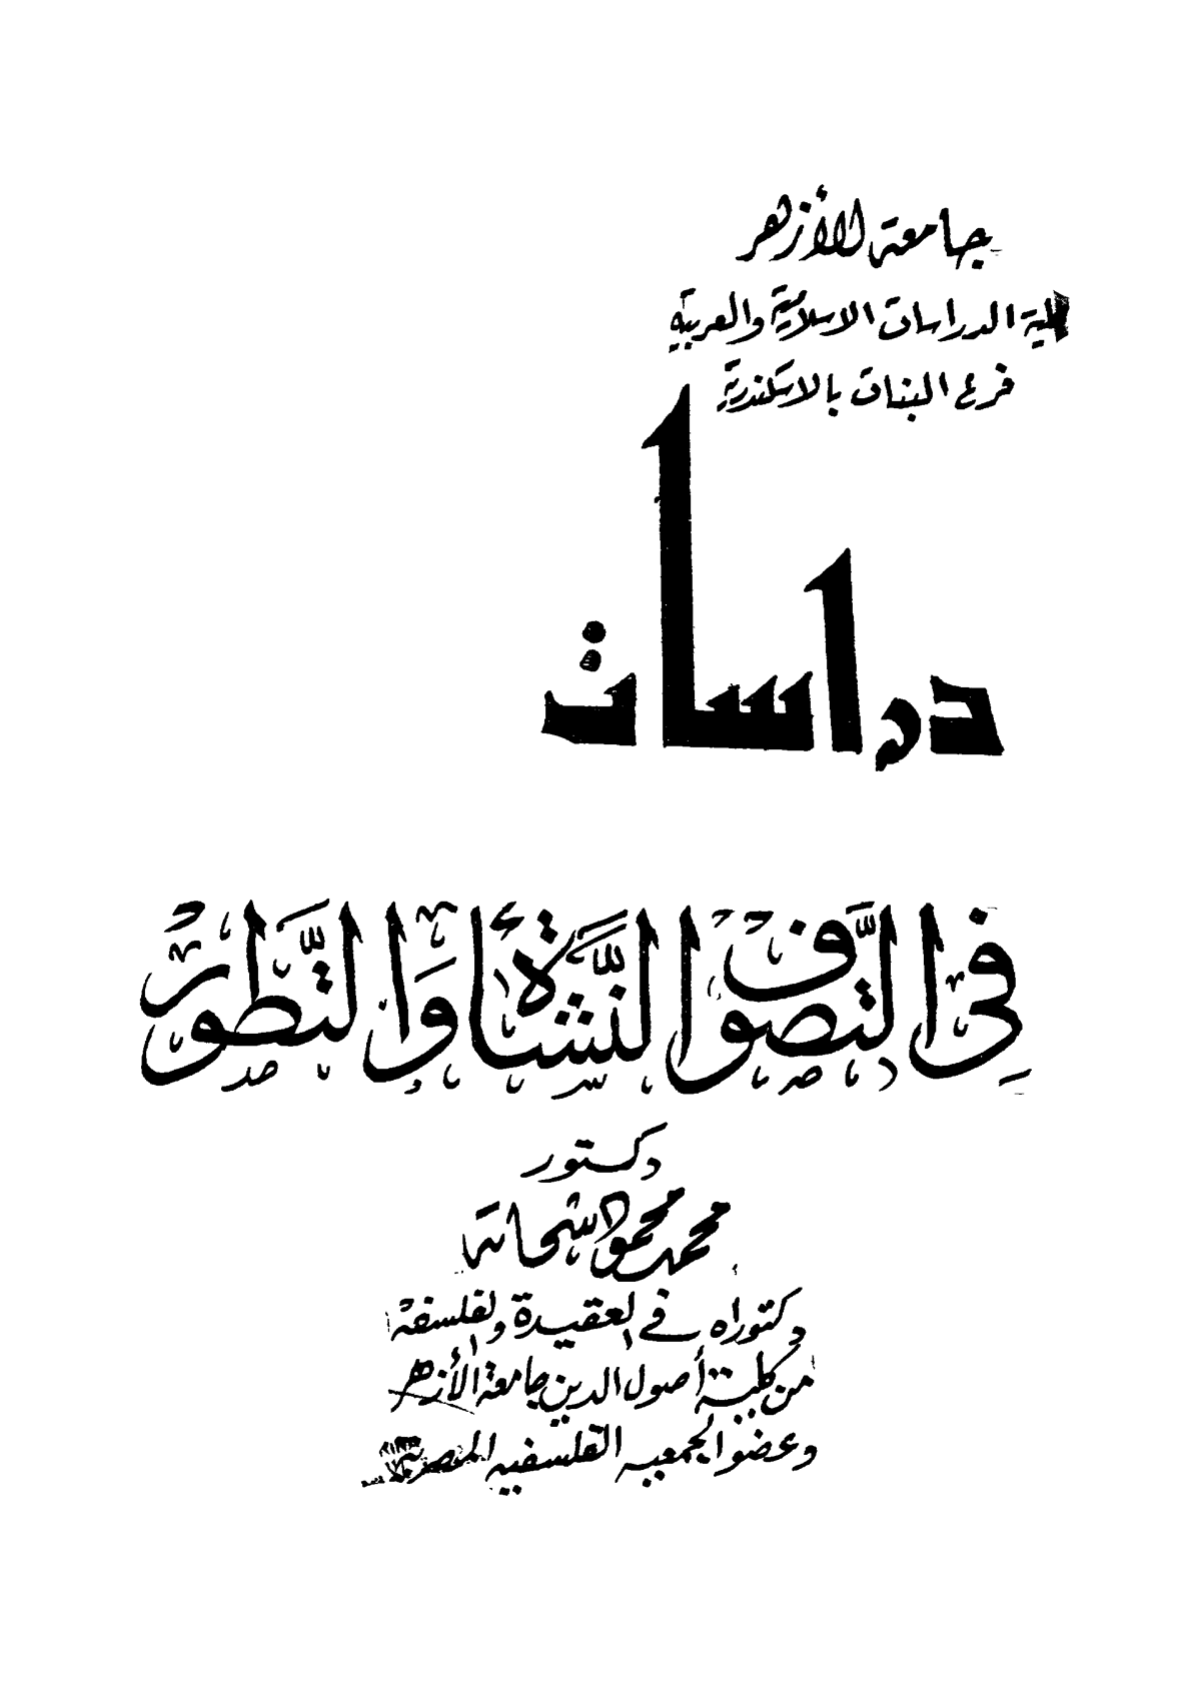 جامعة الأزهر
كلية الدراسات الاسلامية والعربية
فرع البنات بالاسكندرية
دراسات
في التصوف النشأة والتطور
دكتور
محمد محمود شحاتة
دكتوراه في العقيدة والفلسفة
من كلية أصول الدين جامعة الأزهر
وعضو الجمعية الفلسفية المصرية